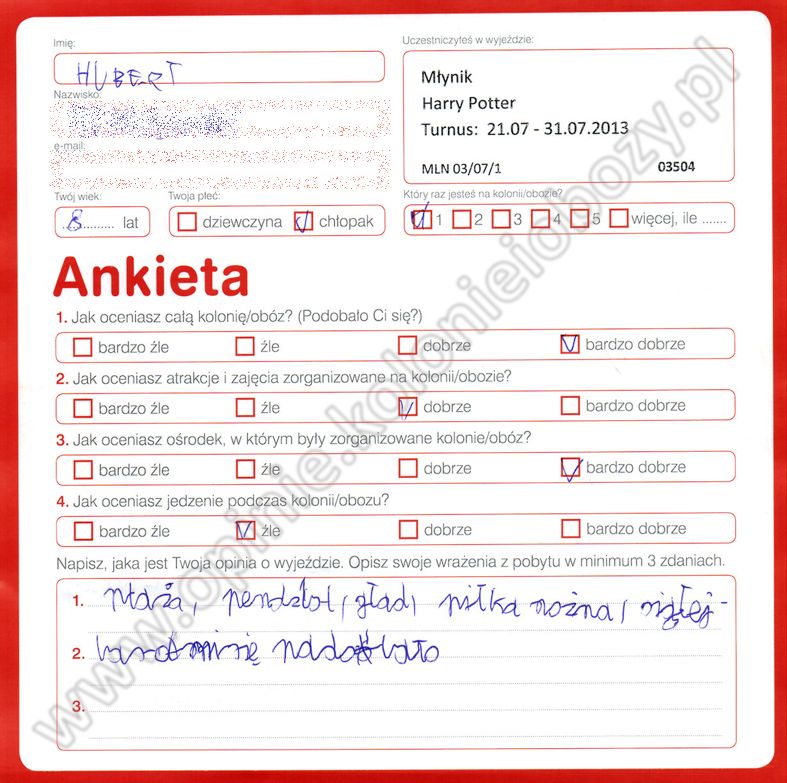 Imię:
HUBERT
Nazwisko:
e-mail:
Twój wiek:
8 lat
Twoja płeć:
dziewczyna chłopak
Uczestniczyłeś w wyjeździe:
Młynik
Harry Potter
Turnus: 21.07 - 31.07.2013
MLN 03/07/1 03504
Który raz jesteś na kolonii/obozie?
1 2 3 4 5 więcej, ile .......
Ankieta
1. Jak oceniasz całą kolonię/obóz? (Podobało Ci się?)
bardzo źle źle dobrze bardzo dobrze
2. Jak oceniasz atrakcje i zajęcia zorganizowane na kolonii/obozie?
bardzo źle źle dobrze bardzo dobrze
3. Jak oceniasz ośrodek, w którym były zorganizowane kolonie/obóz?
bardzo źle źle dobrze bardzo dobrze
4. Jak oceniasz jedzenie podczas kolonii/obozu?
bardzo źle źle dobrze bardzo dobrze
Napisz, jaka jest Twoja opinia o wyjeździe. Opisz swoje wrażenia z pobytu w minimum 3 zdaniach.
1. piłka nożna,
2. się
3.
www.opinie.kolonieiobozy.pl